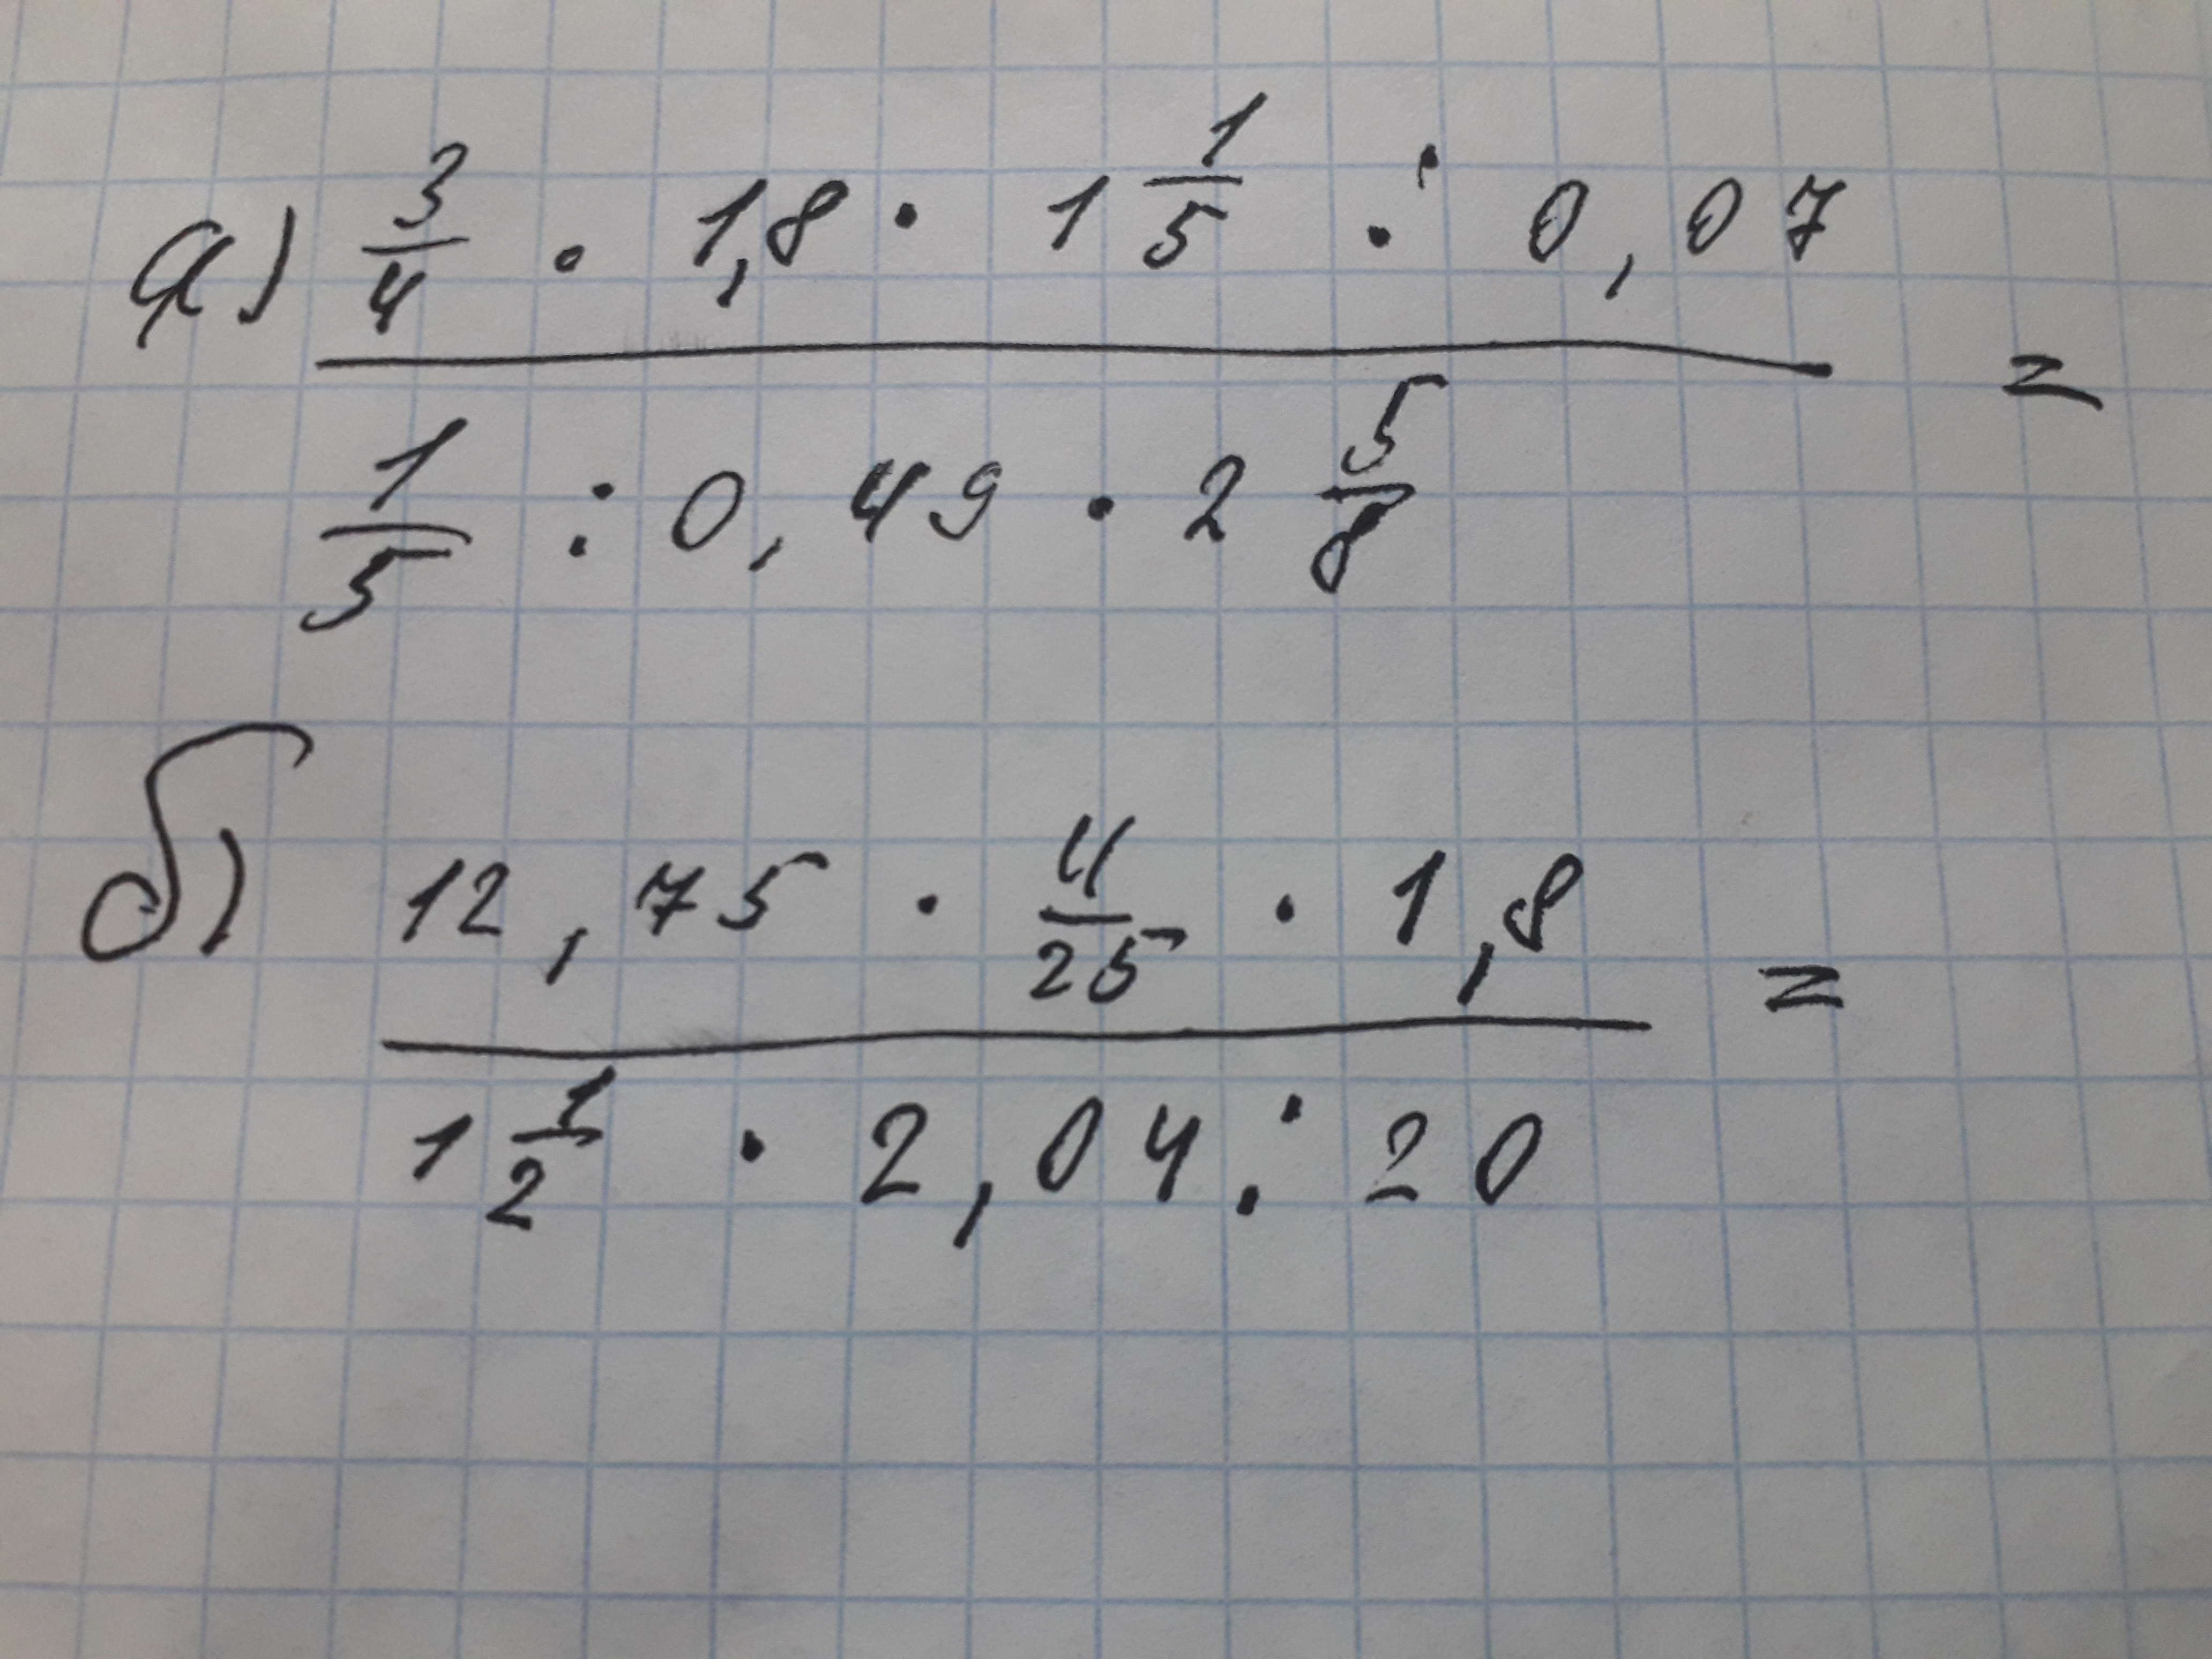 а) 3/4 · 1,8 · 1 1/5 : 0,07 =
1/5 : 0,49 · 2 5/8
б) 12,75 · 4/25 · 1,8 =
1 1/2 · 2,04 : 20